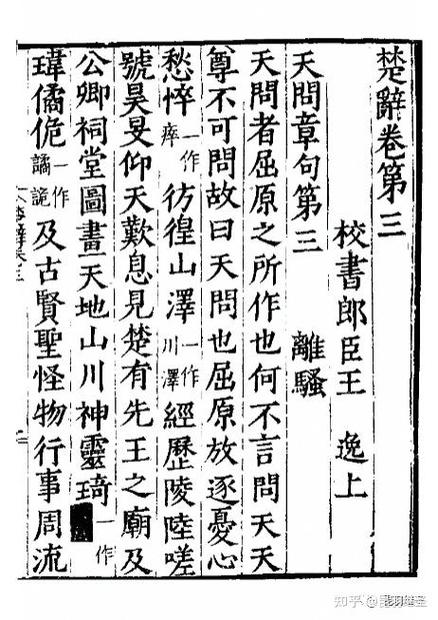 楚辭卷第三
校書郎臣王 逸上
天問章句第三 離騷
天問者屈原之所作也何不言問天天
尊不可問故曰天問也屈原放逐憂心
愁悴一作瘁彷徨山澤一作川澤經歷陵陸嗟
號昊旻仰天歎息見楚有先王之廟及
公卿祠堂圖畫天地山川神靈琦一作
瑋僪佹一作譎詭及古賢聖怪物行事周流
知乎 @昆羽继圣